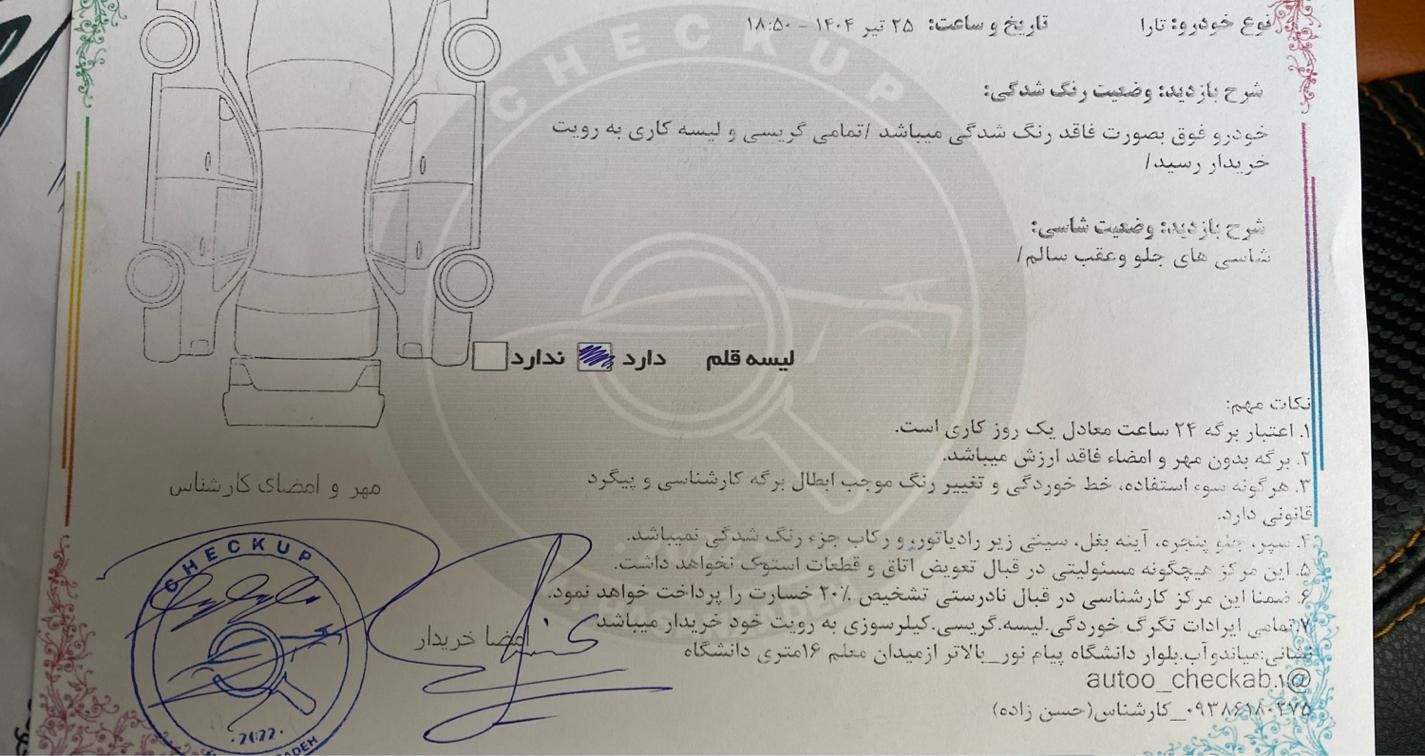 نوع خودرو: تارا
تاریخ و ساعت: ۲۵ تیر ۱۴۰۴ - ۱۸:۵۰
شرح بازدید: وضعیت رنگ شدگی:
خودرو فوق بصورت فاقد رنگ شدگی میباشد /تمامی گریسی و لیسه کاری به رویت
خریدار رسید/
شرح بازدید: وضعیت شاسی:
شاسی های جلو وعقب سالم/
لیسه قلم دارد ندارد
نکات مهم:
۱. اعتبار برگه ۲۴ ساعت معادل یک روز کاری است.
۲. برگه بدون مهر و امضاء فاقد ارزش میباشد.
۳. هرگونه سوء استفاده، خط خوردگی و تغییر رنگ موجب ابطال برگه کارشناسی و پیگرد
قانونی دارد.
۴. سپر، جلو پنجره، آینه بغل، سینی زیر رادیاتور، و رکاب جزء رنگ شدگی نمیباشد.
۵. این مرکز هیچگونه مسئولیتی در قبال تعویض اتاق و قطعات استوک نخواهد داشت.
۶. ضمنا این مرکز کارشناسی در قبال نادرستی تشخیص ۲۰٪ خسارت را پرداخت خواهد نمود.
۷.تمامی ایرادات تگرگ خوردگی.لیسه.گریسی.کیلرسوزی به رویت خود خریدار میباشد
نشانی:میاندوآب.بلوار دانشگاه پیام نور_بالاتر ازمیدان معلم ۱۶متری دانشگاه
@autoo_checkab.۱
۰۹۳۸۶۱۸۰۲۷۵_کارشناس(حسن زاده)
مهر و امضای کارشناس
امضا خریدار
CHECKUP
CHECKUP
۲۰۲۲